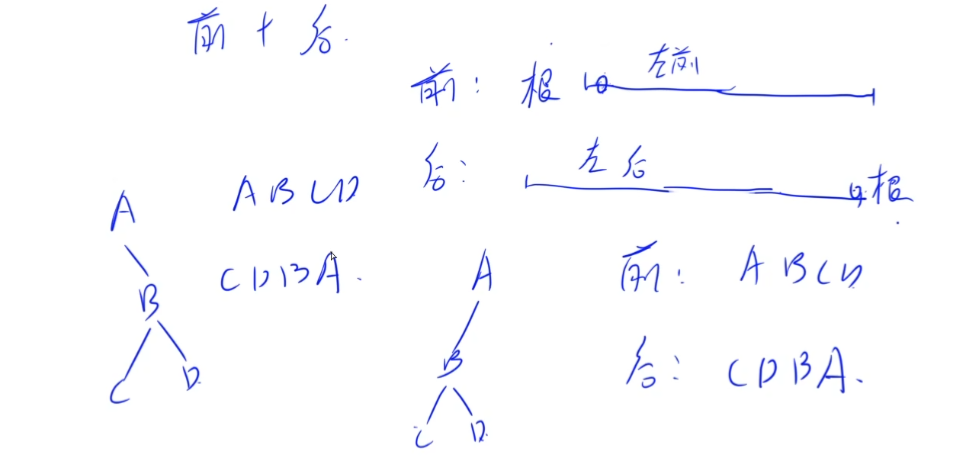 前 + 后.
前: 根 左前
后: 左后 根
A B C D
C D B A.
A
B
C D
A
B
C D
前: A B C D
后: C D B A.